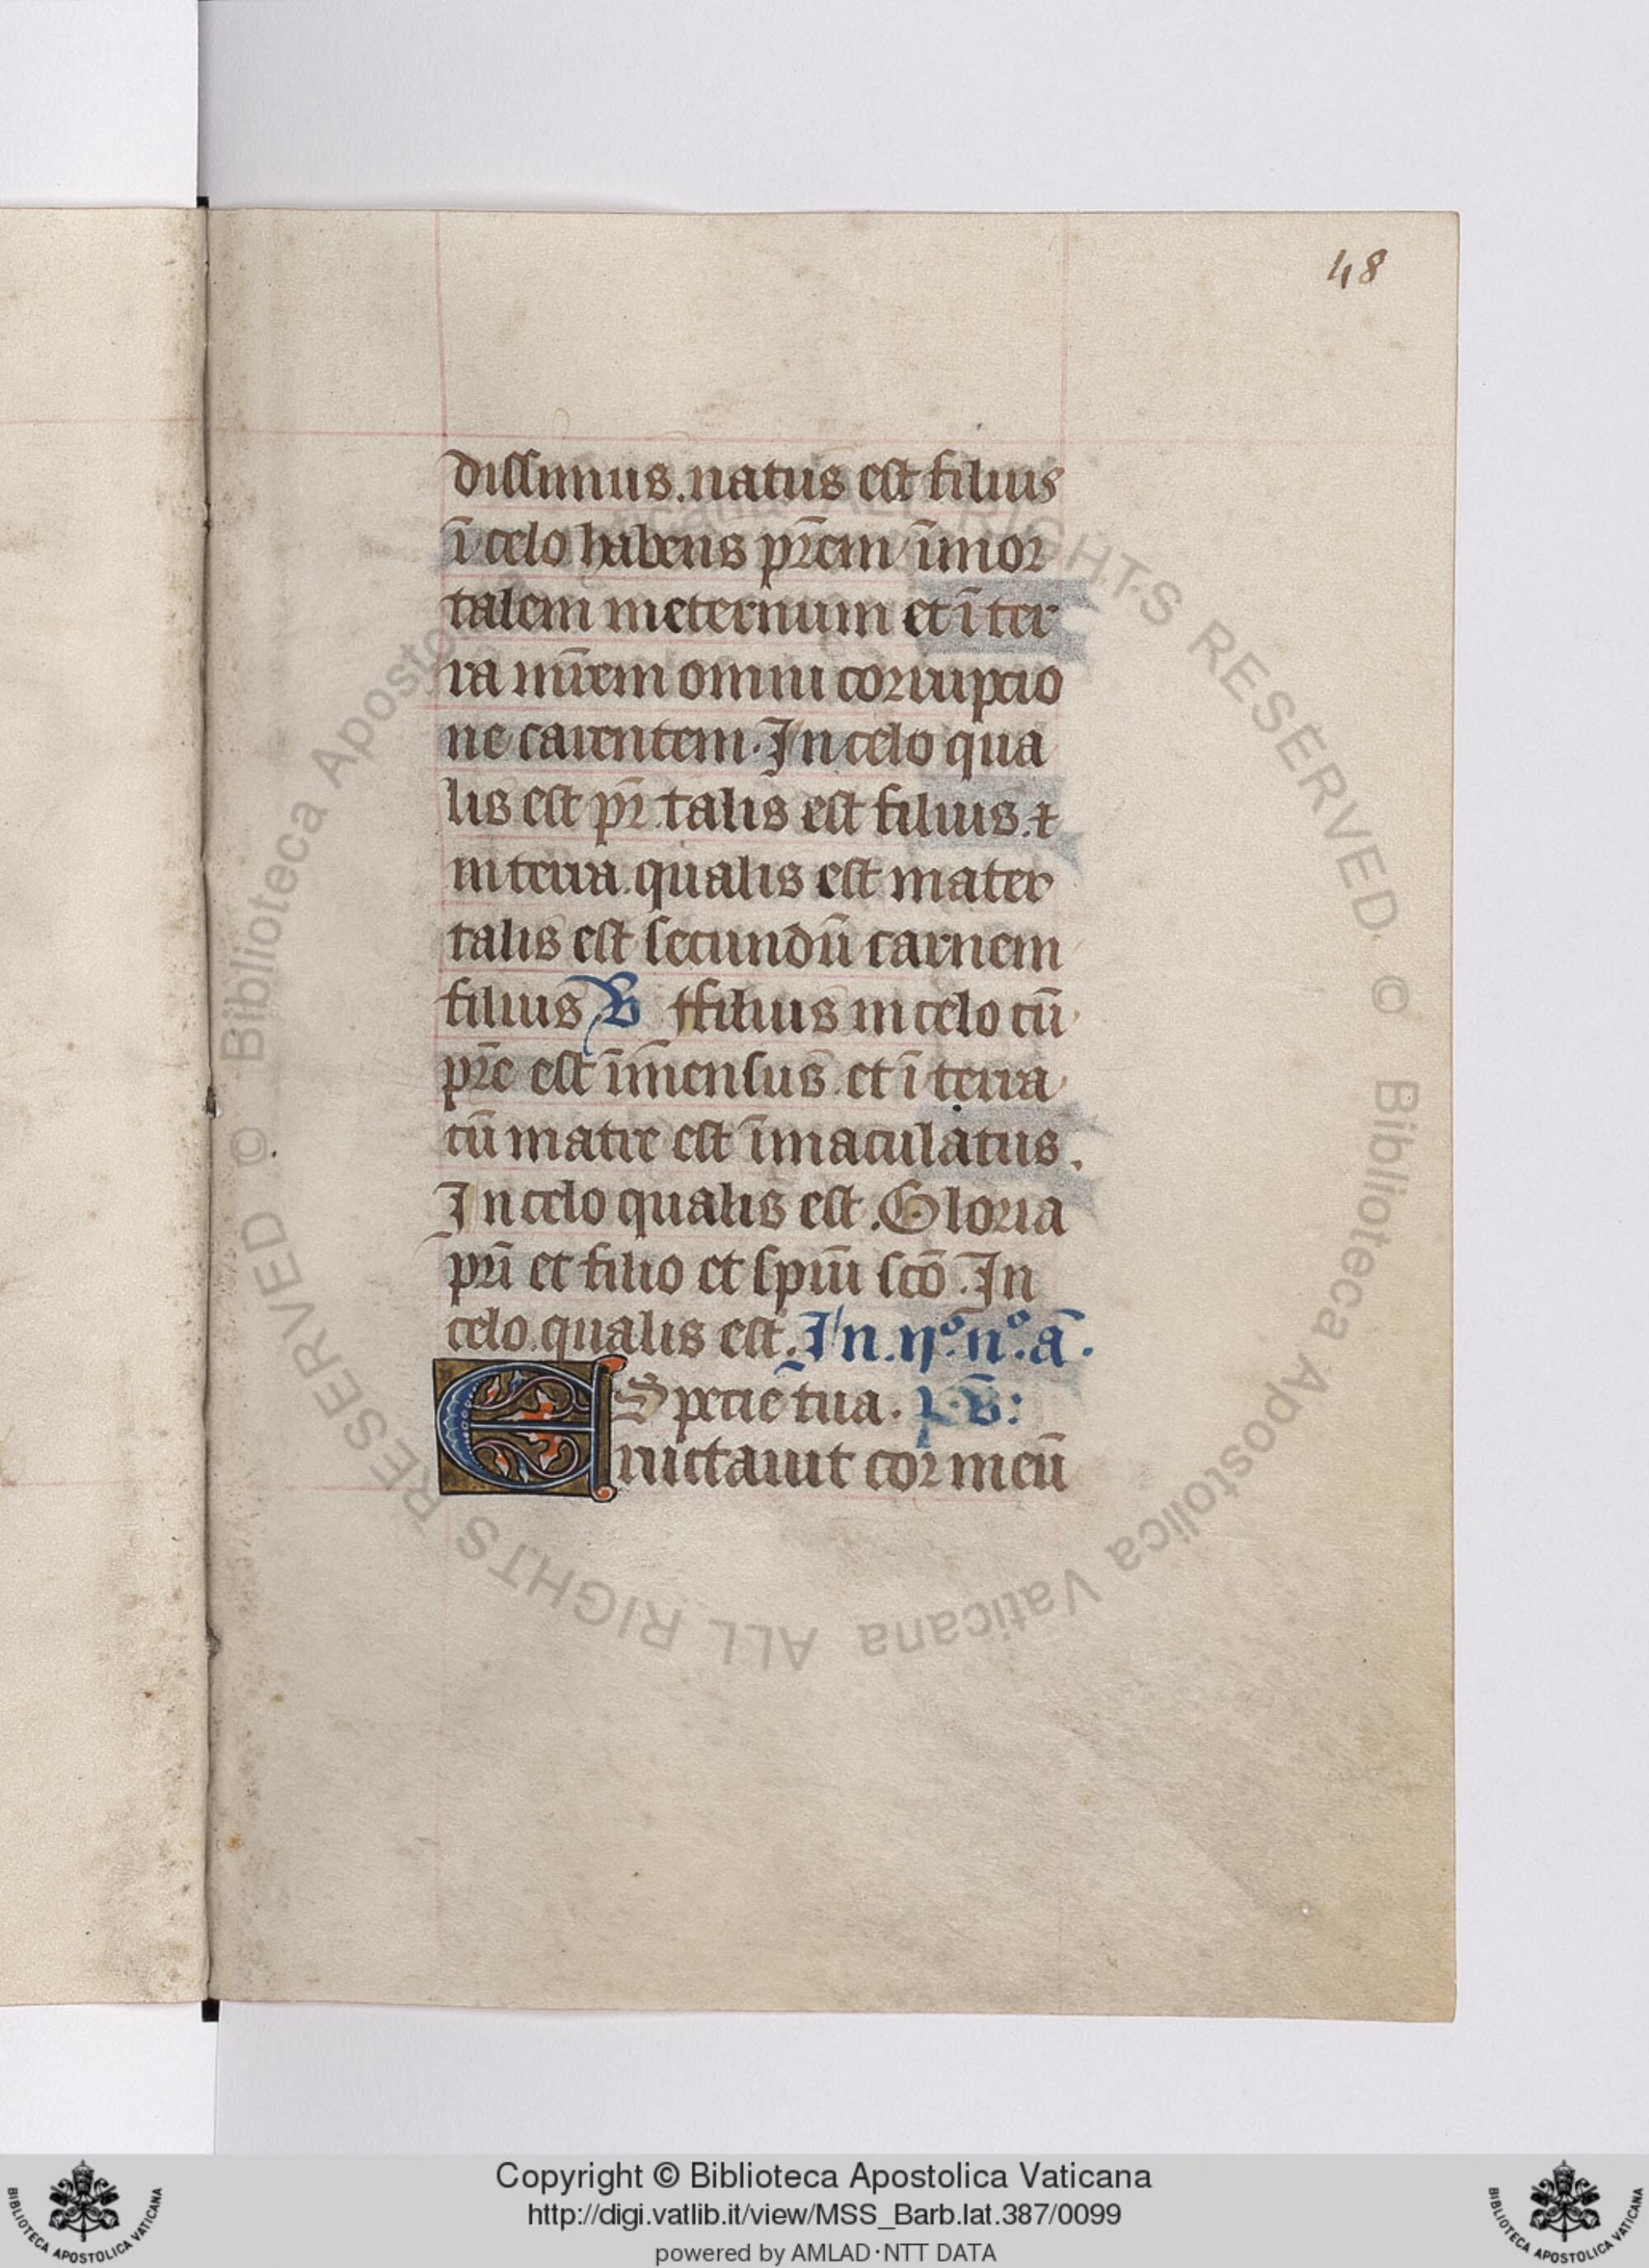 48
dissimus. natus est filius
ī celo habens pr̄em īmor
talem ineternum et ī ter
ra mr̄em omni corrupcio
ne carentem. In celo qua
lis est pr̄. talis est filius. ⁊
in terra. qualis est mater
talis est secundū carnem
filius ℣ ffilius in celo cū
pr̄e est īmensus. et ī terra
cū matre est īmaculatus.
In celo qualis est. Gloria
pr̄i et filio et sp̄ui sc̄o. In
celo. qualis est. In. ijº. nº. ā.
ESpecie tua. p̄s:
ructauit cor meū
© Biblioteca Apostolica Vaticana ALL RIGHTS RESERVED © Biblioteca Apostolica Vaticana ALL RIGHTS RESERVED
Copyright © Biblioteca Apostolica Vaticana
http://digi.vatlib.it/view/MSS_Barb.lat.387/0099
powered by AMLAD·NTT DATA
BIBLIOTECA APOSTOLICA VATICANA
BIBLIOTECA APOSTOLICA VATICANA